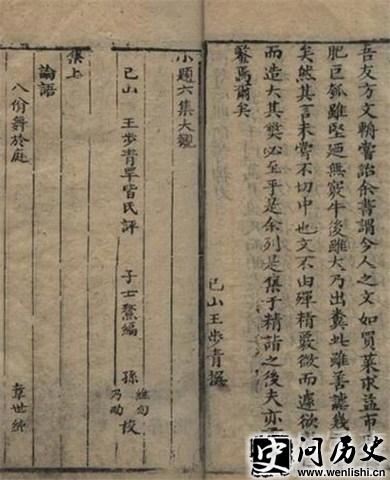 吾友方文輈嘗詒余書謂今人之文如買菜求益市
肥巨瓠雖堅廼無竅牛後雖大乃出糞此雖善謔幾
矣然其言未嘗不切中也文不由殫精覈微而遽欲
而造大其獘必至乎是余列是集于精詣之後夫亦
鑒焉爾矣
已山王步青撰
小題六集大觀
已山 王步青罕皆氏評 子士鰲編 孫 維甸 乃 校
集上
論語
八佾舞於庭 韋世純
史问历史
www.wenlishi.cn